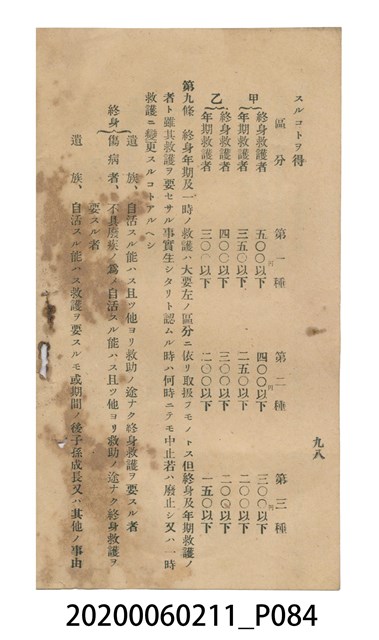 スルコトヲ得
區分 第一種 第二種 第三種
甲 終身救護者 五〇〇以下 四〇〇以下 三〇〇以下
年期救護者 三五〇以下 二五〇以下 二〇〇以下
乙 終身救護者 四〇〇以下 三〇〇以下 二〇〇以下
年期救護者 三〇〇以下 二〇〇以下 一五〇以下
第九條 終身年期及一時ノ救護ハ大要左ノ區分ニ依リ取扱フモノトス但終身及年期救護ノ
者ト雖其救護ヲ要セサル事實生シタリト認ムル時ハ何時ニテモ中止若ハ廢止シ又ハ一時
救護ニ變更スルコトアルヘシ
終身
遺族、自活スル能ハス且ツ他ヨリ救助ノ途ナク終身救護ヲ要スル者
傷病者、不具癈疾ノ爲メ自活スル能ハス且ツ他ヨリ救助ノ途ナク終身救護ヲ
要スル者
遺族、自活スル能ハス救護ヲ要スルモ或期間ノ後子孫成長又ハ其他ノ事由
九八
20200060211_P084